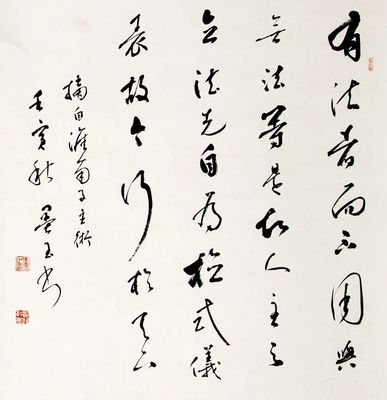 有法者而不用與
無法等是故人主之
立法先自為檢式儀
表故令行於天下
摘自淮南子主術
壬寅秋 玉書